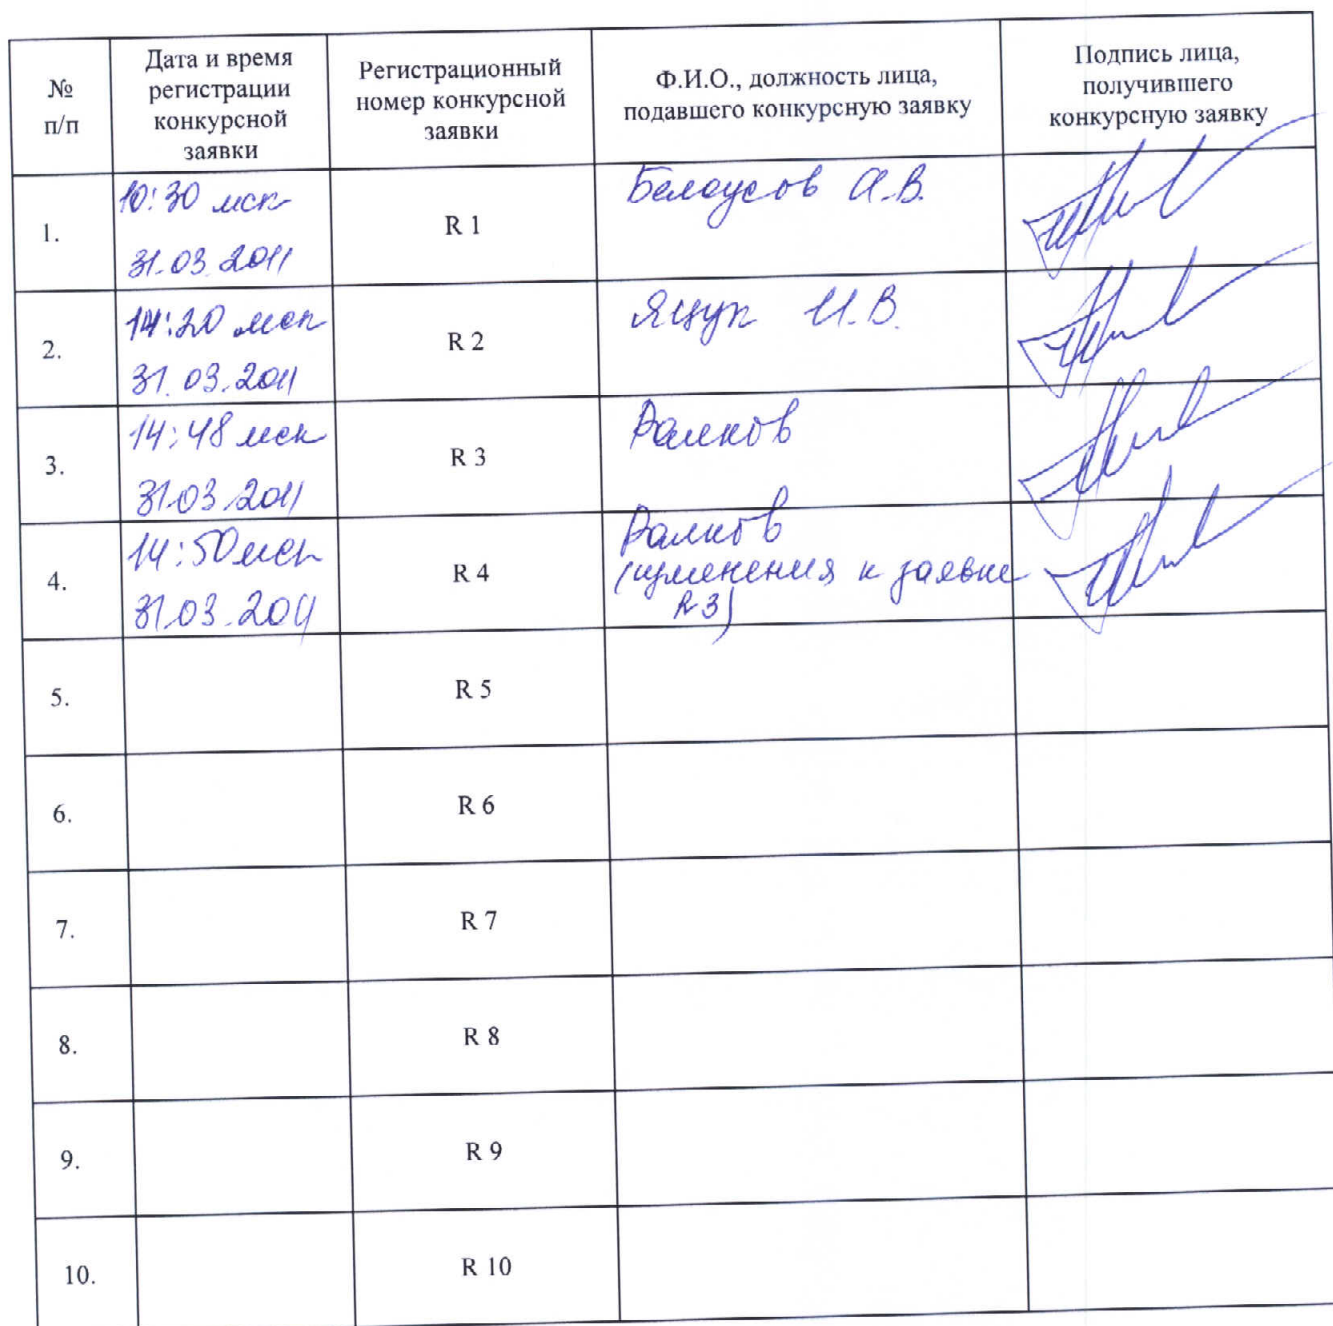 №
п/п
Дата и время
регистрации
конкурсной
заявки
Регистрационный
номер конкурсной
заявки
Ф.И.О., должность лица,
подавшего конкурсную заявку
Подпись лица,
получившего
конкурсную заявку
1.
10:30 мск
31.03.2011
R 1
Белоусов А.В.
2.
14:20 мск
31.03.2011
R 2
Яцук И.В.
3.
14:48 мск
31.03.2011
R 3
4.
14:50 мск
31.03.2011
R 4
(изменения к заявке
R3)
5.
R 5
6.
R 6
7.
R 7
8.
R 8
9.
R 9
10.
R 10